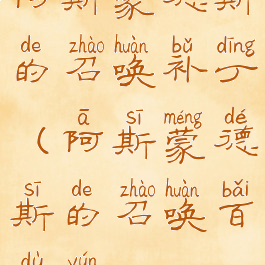 阿斯蒙德斯
de zhào huàn bǔ dīng
的召唤补丁
ā sī méng dé
(阿斯蒙德
sī de zhào huàn bǎi
斯的召唤百
dù yún